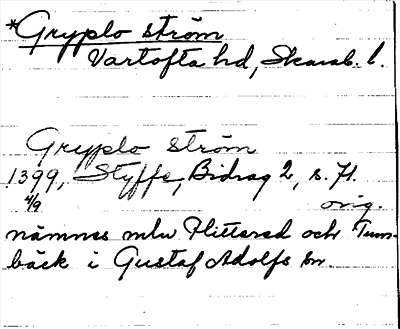 *Gryplo ström
Vartofta hd, Skarab. l.
Gryplo ström
1399, Styffe, Bidrag 2, s. 71.
4/9 orig.
nämnes mlw Hittered och Tums-
bäck i Gustaf Adolfs sn.